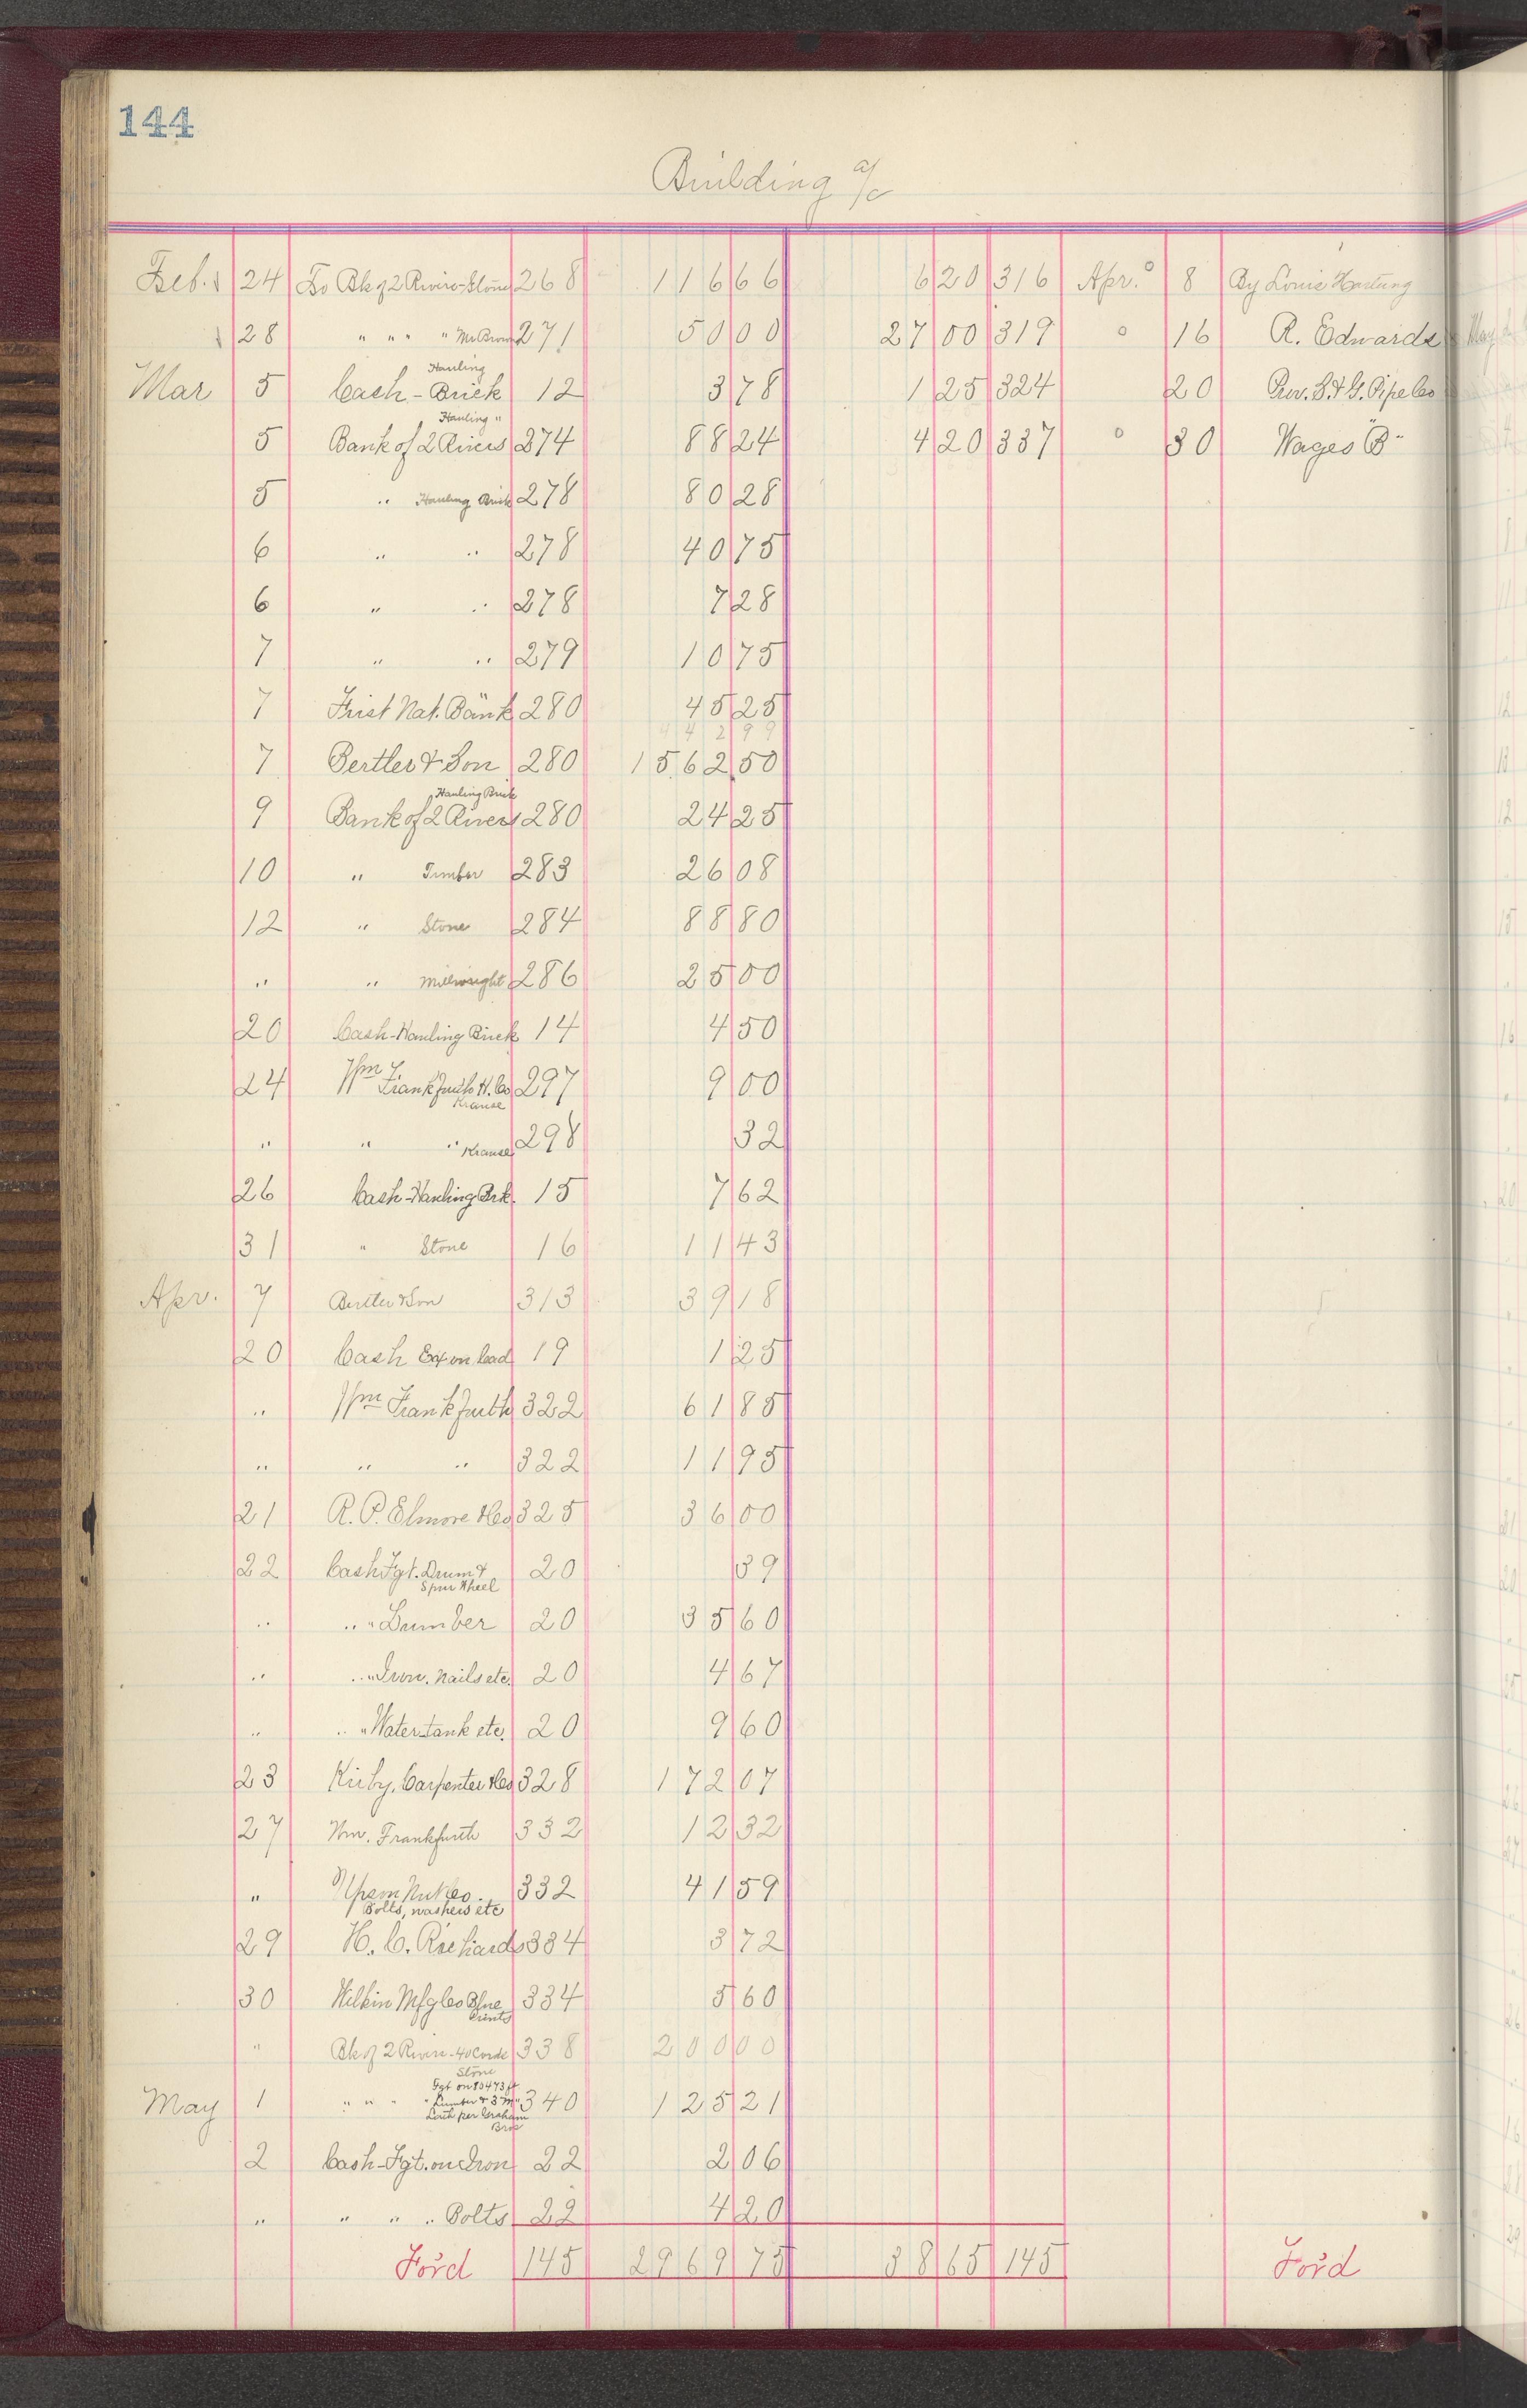 144
Building a/c
Feb. 24 To Bk of 2 Rivers-Stone 268 116 66 6 20 316 Apr. 8 By Louis Hartung
28 " " " " Mr. Brown 271 50 00 27 00 319 16 R. Edwards
Hauling
Mar 5 Cash - Brick 12 3 78 1 25 324 20 Prov. S. & G. Pipe Co
Hauling "
5 Bank of 2 Rivers 274 88 24 4 20 337 30 Wages "B"
5 " Hauling Brick 278 80 28
6 " " 278 40 75
6 " " 278 7 28
7 " " 279 10 75
7 Frist Nat. Bank 280 45 25
4 4 2 9 9
7 Bertler & Son 280 1562 50
Hauling Brick
9 Bank of 2 Rivers 280 24 25
10 " Timber 283 26 08
12 " Stone 284 88 80
" " Millwright 286 25 00
20 Cash-Hauling Brick 14 4 50
24 Wm Frankfurth H. Co 297 9 00
Krause
" " " Krause 298 32
26 Cash-Hauling Brk. 15 7 62
31 " Stone 16 11 43
Apr. 7 Bertler & Son 313 39 18
20 Cash Ex on lead 19 1 25
" Wm Frankfurth 322 61 85
" " " 322 11 95
21 R. P. Elmore & Co 325 36 00
22 Cash Fgt. Drum & 20 39
Spur Wheel
" " " Lumber 20 35 60
" " " Iron, Nails etc. 20 4 67
" " " Water-tank etc. 20 9 60
23 Kirby, Carpenter & Co 328 172 07
27 Wm. Frankfurth 332 12 32
" Upsm Nut Co. 332 41 59
Bolts, washers etc
29 H. C. Richards 334 3 72
30 Wilkin Mfg Co Blue 334 5 60
Prints
" Bk of 2 Rivers-40 Cords 338 200 00
Stone
Fgt on 80473 ft
May 1 " " " " Lumber & 3 M 340 125 21
Lath per Graham
Bros
2 Cash-Fgt. on Iron 22 2 06
" " " " Bolts 22 4 20
For'd 145 2969 75 38 65 145 For'd